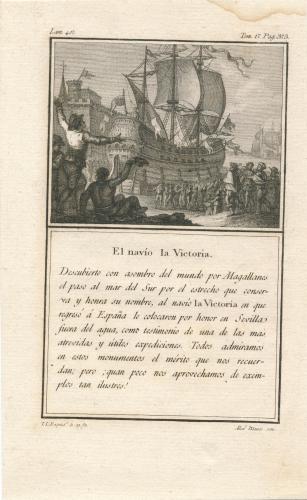 Lam. 42.
Tom. 17. Pag. 313.
El navío la Victoria.
Descubierto con asombro del mundo por Magallanes
el paso al mar del Sur por el estrecho que conser-
va y honra su nombre, al navío la Victoria en que
regresó á España le colocaron por honor en Sevilla
fuera del agua, como testimonio de una de las mas
atrevidas y útiles expediciones. Todos admiramos
en estos monumentos el mérito que nos recuer-
dan; pero ¡quan poco nos aprovechamos de exem-
plos tan ilustres!
Blanco